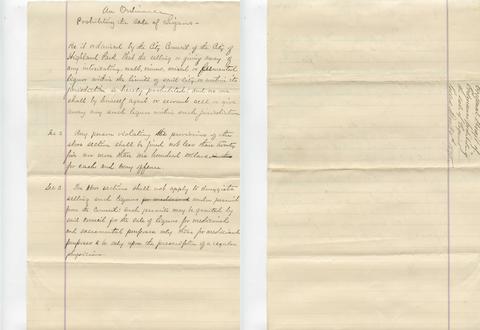 An Ordinance
Prohibiting the sale of Liquors -
Be it ordained by the City Council of the City of
Highland Park that the selling or giving away of
any intoxicating, malt, vinous, mixed or fermented
liquor within the limits of said city or within its
jurisdiction is hereby prohibited and no one
shall by himself agent or servant sell or give
away any such liquor within such jurisdiction
Sec 2 Any person violating the provisions of the
above section shall be fined not less than twenty
five nor more than one hundred dollars
for each and every offense.
Sec 3 The above sections shall not apply to druggists
selling such liquors for medicinal under permit
from the Council: such permits may be granted by
said council for the sale of liquors for medicinal
and sacramental purposes only those for medicinal
purposes to be only upon the prescription of a regular
physician.